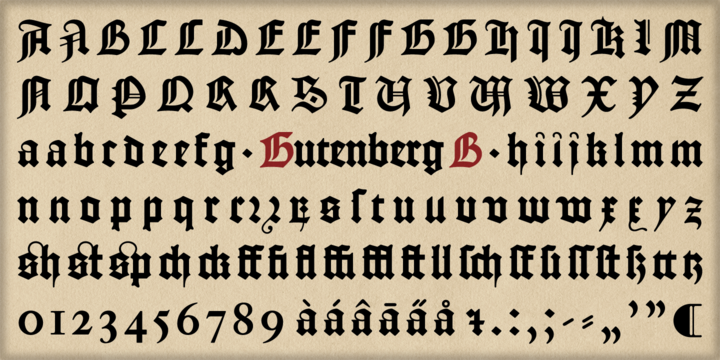 A A B C C D E E F F G G H I J K L M
N O P Q R R S T U V W W X Y Z
a a b c d e e f g · Gutenberg B · h i i j k l m m
n n o p p q r r ꝛ ꝛ s ſ t u u v v w w x x y z
sh st sp ch ck ff fi fl ffi ffl ft ll ſch ſſ ſi ſſ ſt tt tz
0123456789 à á â ā ő å .:,;-⸗„’” ¶